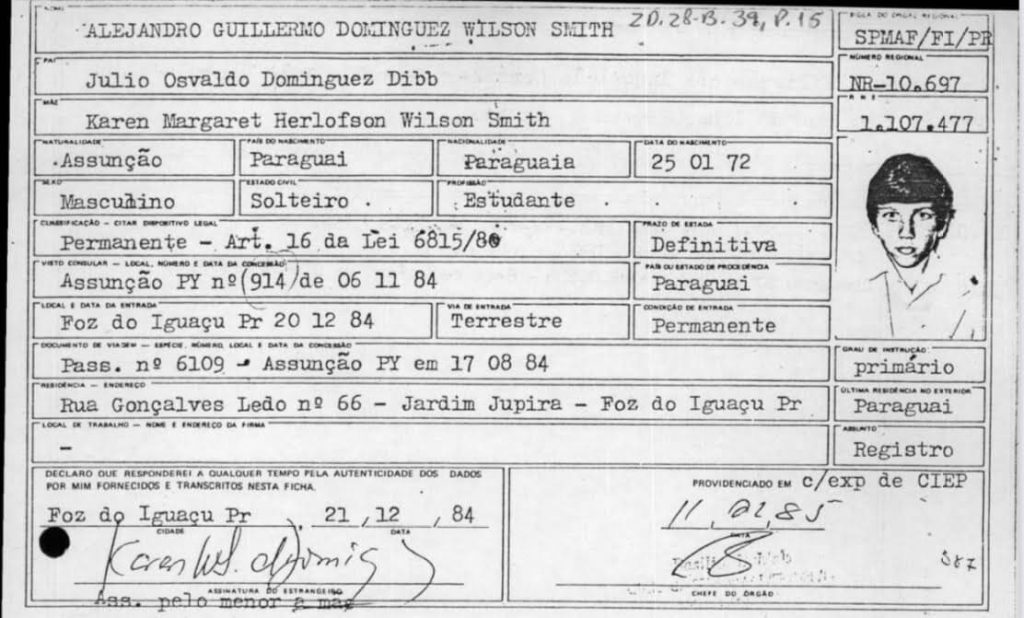 NOME
ALEJANDRO GUILLERMO DOMINGUEZ WILSON SMITH
2D.28-B.39, P.15
SIGLA DO ÓRGÃO REGIONAL
SPMAF/FI/PR
PAI
Julio Osvaldo Dominguez Dibb
NÚMERO REGIONAL
NR-10.697
MÃE
Karen Margaret Herlofson Wilson Smith
R N E
1.107.477
NATURALIDADE
Assunção
PAÍS DO NASCIMENTO
Paraguai
NACIONALIDADE
Paraguaia
DATA DO NASCIMENTO
25 01 72
SEXO
Masculino
ESTADO CIVIL
Solteiro
PROFISSÃO
Estudante
CLASSIFICAÇÃO - CITAR DISPOSITIVO LEGAL
Permanente - Art. 16 da Lei 6815/80
PRAZO DE ESTADA
Definitiva
VISTO CONSULAR - LOCAL, NÚMERO E DATA DA CONCESSÃO
Assunção PY nº(914)de 06 11 84
PAÍS OU ESTADO DE PROCEDÊNCIA
Paraguai
LOCAL E DATA DA ENTRADA
Foz do Iguaçu Pr 20 12 84
VIA DE ENTRADA
Terrestre
CONDIÇÃO DE ENTRADA
Permanente
DOCUMENTO DE VIAGEM - ESPÉCIE, NÚMERO, LOCAL E DATA DA CONCESSÃO
Pass. nº 6109 - Assunção PY em 17 08 84
GRAU DE INSTRUÇÃO
primário
RESIDÊNCIA - ENDEREÇO
Rua Gonçalves Ledo nº 66 - Jardim Jupira - Foz do Iguaçu Pr
ÚLTIMA RESIDÊNCIA NO EXTERIOR
Paraguai
LOCAL DE TRABALHO - NOME E ENDEREÇO DA FIRMA
-
ASSUNTO
Registro
DECLARO QUE RESPONDEREI A QUALQUER TEMPO PELA AUTENTICIDADE DOS DADOS
POR MIM FORNECIDOS E TRANSCRITOS NESTA FICHA.
Foz do Iguaçu Pr, 21 ,12 ,84
CIDADE
DATA
ASSINATURA DO ESTRANGEIRO
Ass. pelo menor a mãe
PROVIDENCIADO EM c/exp de CIEP
DATA
CHEFE DO ÓRGÃO